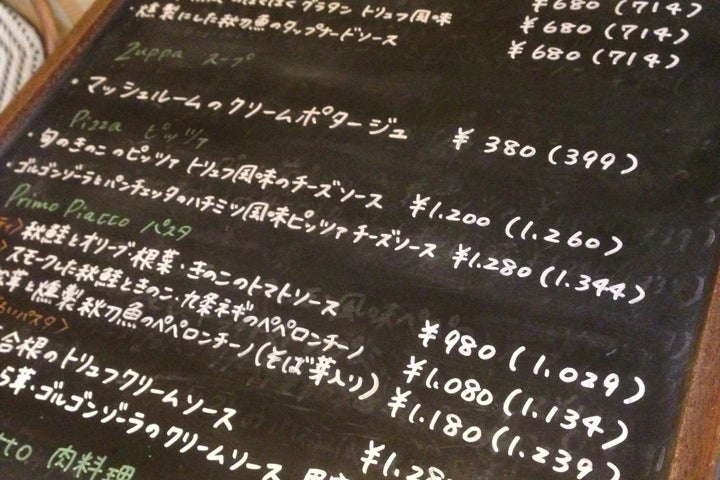 グラタン トリュフ風味 ¥680(714)
・燻製にした秋刀魚のタップナードソース ¥680(714)
¥680(714)
Zuppa スープ
・マッシュルームのクリームポタージュ ¥380(399)
Pizza ピッツァ
・旬のきのこのピッツァ トリュフ風味のチーズソース ¥1.200(1.260)
・ゴルゴンゾーラとパンチェッタのハチミツ風味ピッツァ チーズソース ¥1.280(1.344)
Primo Piacco パスタ
秋鮭とオリーブ・根菜・きのこのトマトソース ¥980(1.029)
スモークした秋鮭ときのこ・九条ネギのペペロンチーノ ¥1.080(1.134)
と燻製秋刀魚のペペロンチーノ(そば芽入り) ¥1.180(1.239)
パスタ〉
合根のトリュフクリームソース ¥1.28
茸・ゴルゴンゾーラのクリームソース
肉料理